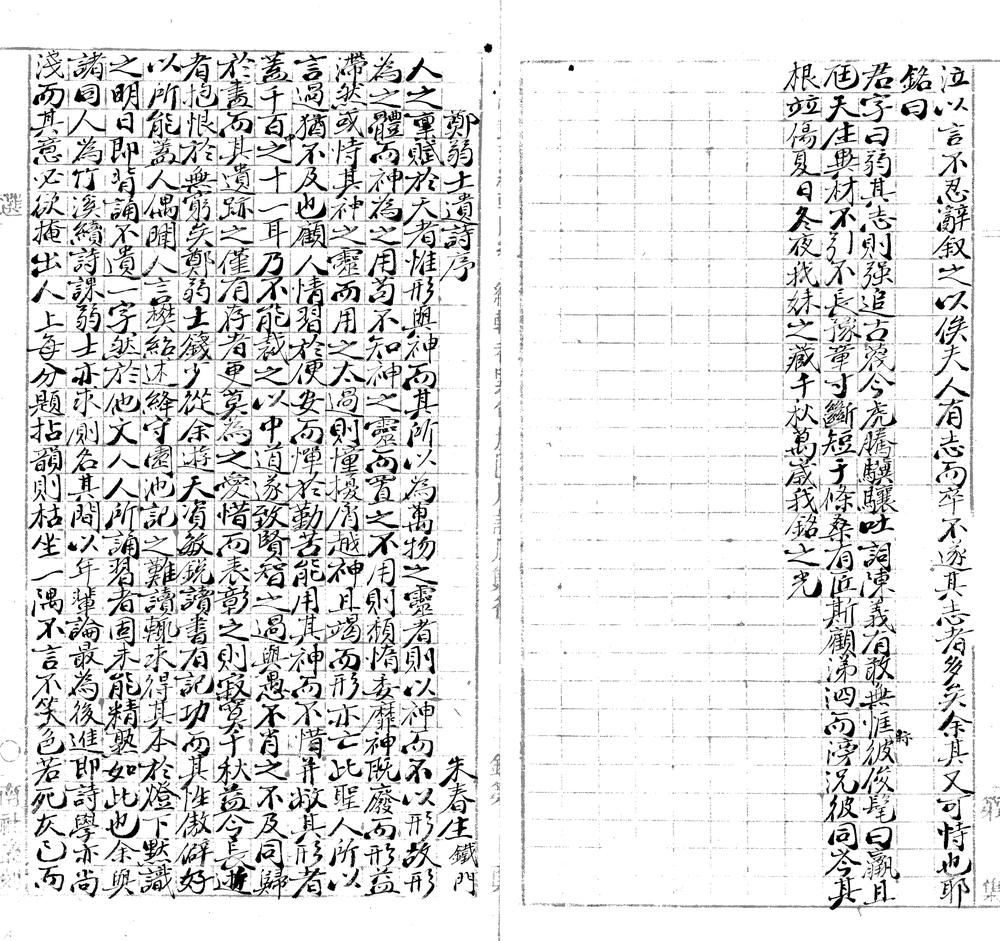 泣以言不忍辭叙之以俟夫人有志而卒不遂其志者多矣余其又可恃也耶
銘曰
君字曰弱其志則强追古蔑今虎騰驤驤吐詞陳義有敢無恇彼俊髦曰羸且
尪天生異材不引不長豫章寸斷短于條桑有匠斯顧涕泗而滂況彼同岑其
根竝傷夏日冬夜我妹之藏千秋萬歲我銘之光
鄭弱士遺詩序
朱春生鐵門
人之稟賦於天者惟形與神而其所以為萬物之靈者則以神而不以形故形
為之體而神為之用苟不知神之靈而置之不用則頹惰委靡神既廢而形益
滯然或恃其神之靈而用之太過則憧擾屑越神且竭而形亦亡此聖人所以
言過猶不及也顧人情習於便安而憚於勤苦能用其神而不惜并敝其形者
蓋千百中之十一耳乃不能裁之以中道遂致賢智之過與愚不肖之不及同歸
於盡而其遺跡之僅有存者更莫為之愛惜而表彰之則寂寞千秋益令長逝
者抱恨於無窮矣鄭弱士錢少從余遊天資敏銳讀書有記功而其性傲僻好
以所能蓋人偶聞人言樊紹述絳守園池記之難讀輒求得其本於燈下默識
之明日即背誦不遺一字然於他文人人所誦習者固未能精熟如此也余與
諸同人為竹溪續詩課弱士亦求則名其間以年輩論最為後進即詩學亦尚
淺而其意必欲掩出人上每分題拈韻則枯坐一隅不言不笑色若死灰已而